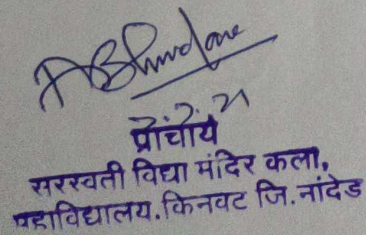 प्राचार्य
सरस्वती विद्या मंदिर कला,
महाविद्यालय. किनवट जि. नांदेड